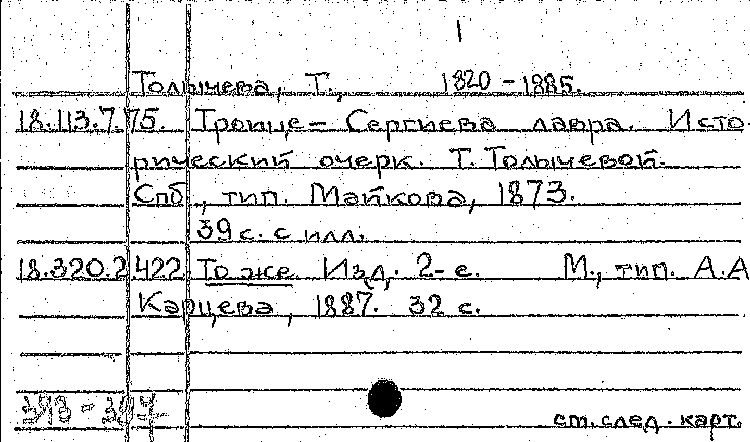 1
Толычева, Т., 1820-1885.
18.113.7.75. Троице-Сергиева лавра. Исто-
рический очерк. Т. Толычевой.
Спб., тип. Майкова, 1873.
39 с. с илл.
18.320.2.422 То же. Изд. 2-е. М., тип. А.А
Карцева, 1887. 32 с.
393-397
ст. след. карт.